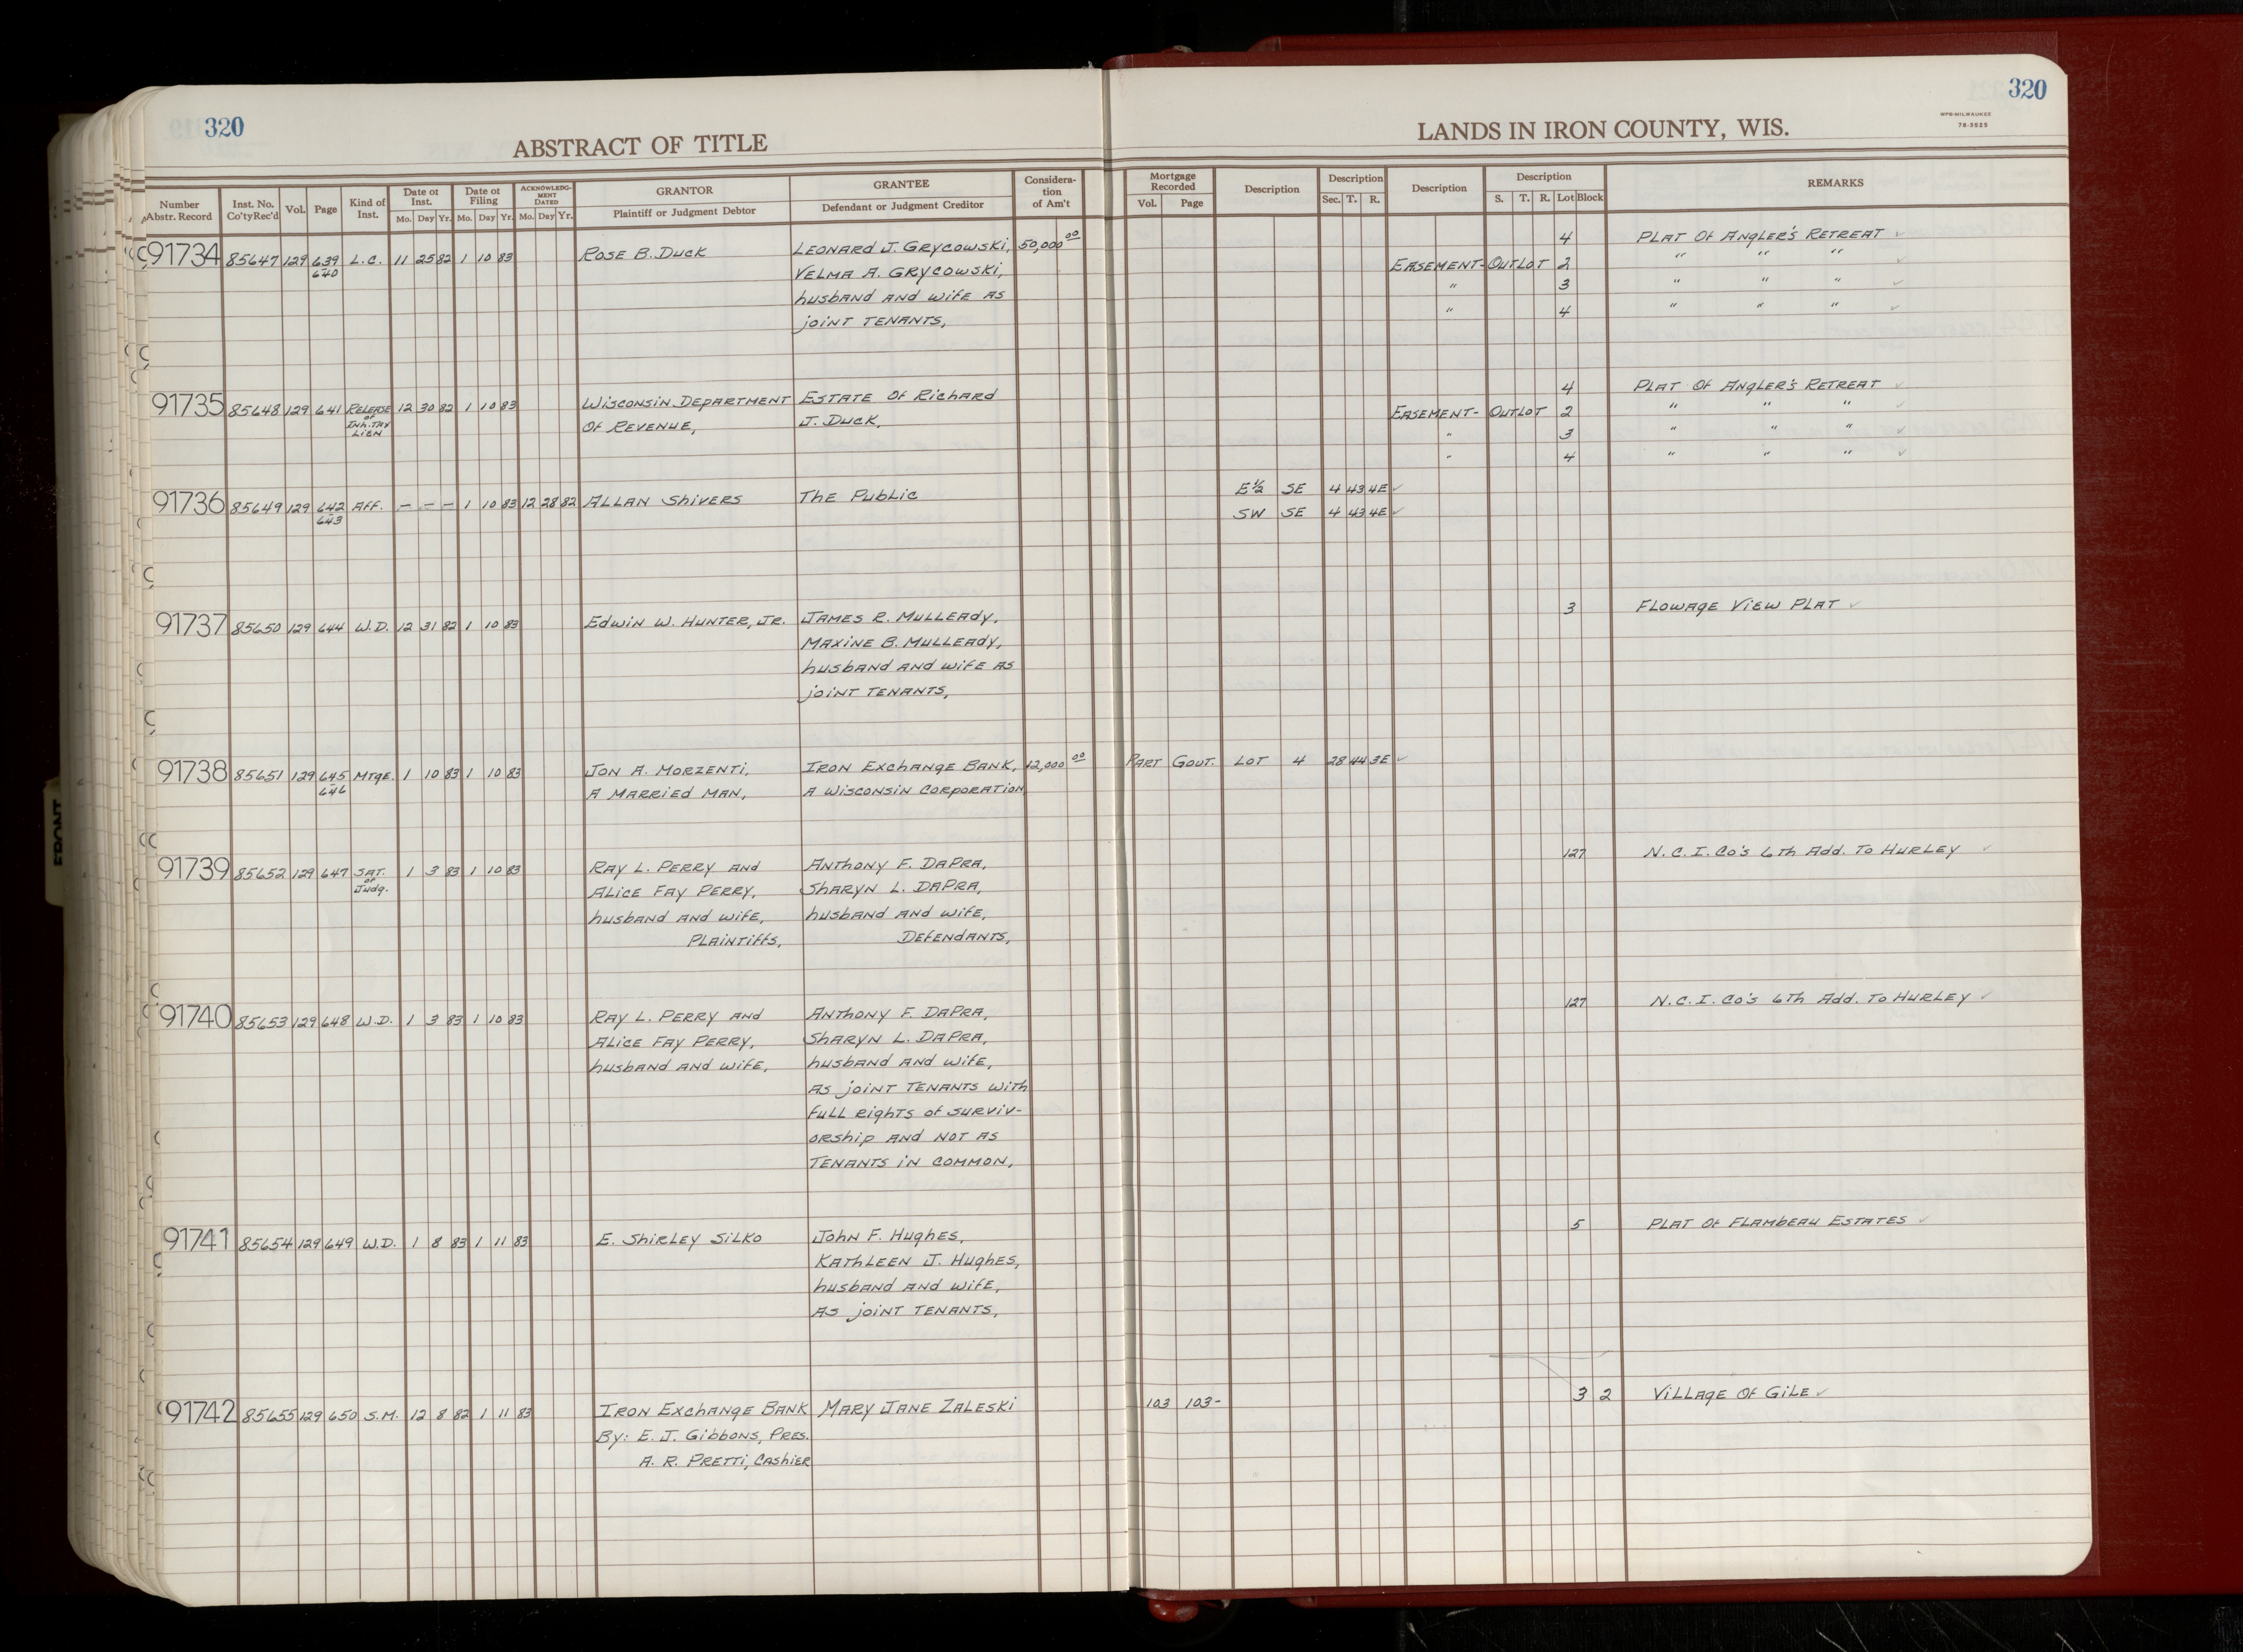 320
320
ABSTRACT OF TITLE
LANDS IN IRON COUNTY, WIS.
WPB-MILWAUKEE
78-3525
Number Abstr. Record | Inst. No. Co'ty Rec'd | Vol. | Page | Kind of Inst. | Date of Inst. Mo. Day Yr. | Date of Filing Mo. Day Yr. | ACKNOWLEDGMENT DATED Mo. Day Yr. | GRANTOR Plaintiff or Judgment Debtor | GRANTEE Defendant or Judgment Creditor | Consideration of Am't | Mortgage Recorded Vol. Page | Description | Description Sec. T. R. | Description | Description S. T. R. Lot Block | REMARKS
91734 85647 129 639 L.C. 11 25 82 1 10 83 Rose B. Duck Leonard J. Grycowski, 50,000 00 4 Plat Of Angler's Retreat ✓
640 Velma A. Grycowski, Easement- Outlot 2 " " " ✓
husband and wife as " 3 " " " ✓
joint tenants, " 4 " " " ✓
91735 85648 129 641 Release 12 30 82 1 10 83 Wisconsin Department Estate Of Richard 4 Plat Of Angler's Retreat ✓
of Inh. Tax Lien Of Revenue, J. Duck, Easement- Outlot 2 " " " ✓
" 3 " " " ✓
" 4 " " " ✓
91736 85649 129 642 Aff. – – – 1 10 83 12 28 82 Allan Shivers The Public E½ SE 4 43 4E ✓
643 SW SE 4 43 4E ✓
91737 85650 129 644 W.D. 12 31 82 1 10 83 Edwin W. Hunter, Jr. James R. Mulleady, 3 Flowage View Plat ✓
Maxine B. Mulleady,
husband and wife as
joint tenants,
91738 85651 129 645 Mtge. 1 10 83 1 10 83 Jon A. Morzenti, Iron Exchange Bank, 12,000 00 Part Govt. Lot 4 28 44 3E ✓
646 A married man, A Wisconsin Corporation
91739 85652 129 647 Sat. 1 3 83 1 10 83 Ray L. Perry and Anthony F. DaPra, 127 N.C.I. Co's 6th Add. To Hurley ✓
of Judg. Alice Fay Perry, Sharyn L. DaPra,
husband and wife, husband and wife,
Plaintiffs, Defendants,
91740 85653 129 648 W.D. 1 3 83 1 10 83 Ray L. Perry and Anthony F. DaPra, 127 N.C.I. Co's 6th Add. To Hurley ✓
Alice Fay Perry, Sharyn L. DaPra,
husband and wife, husband and wife,
as joint tenants with
full rights of surviv-
orship and not as
tenants in common,
91741 85654 129 649 W.D. 1 8 83 1 11 83 E. Shirley Silko John F. Hughes, 5 Plat Of Flambeau Estates ✓
Kathleen J. Hughes,
husband and wife,
as joint tenants,
91742 85655 129 650 S.M. 12 8 82 1 11 83 Iron Exchange Bank Mary Jane Zaleski 103 103- 3 2 Village Of Gile ✓
By: E. J. Gibbons, Pres.
A. R. Pretti, Cashier
FRONT